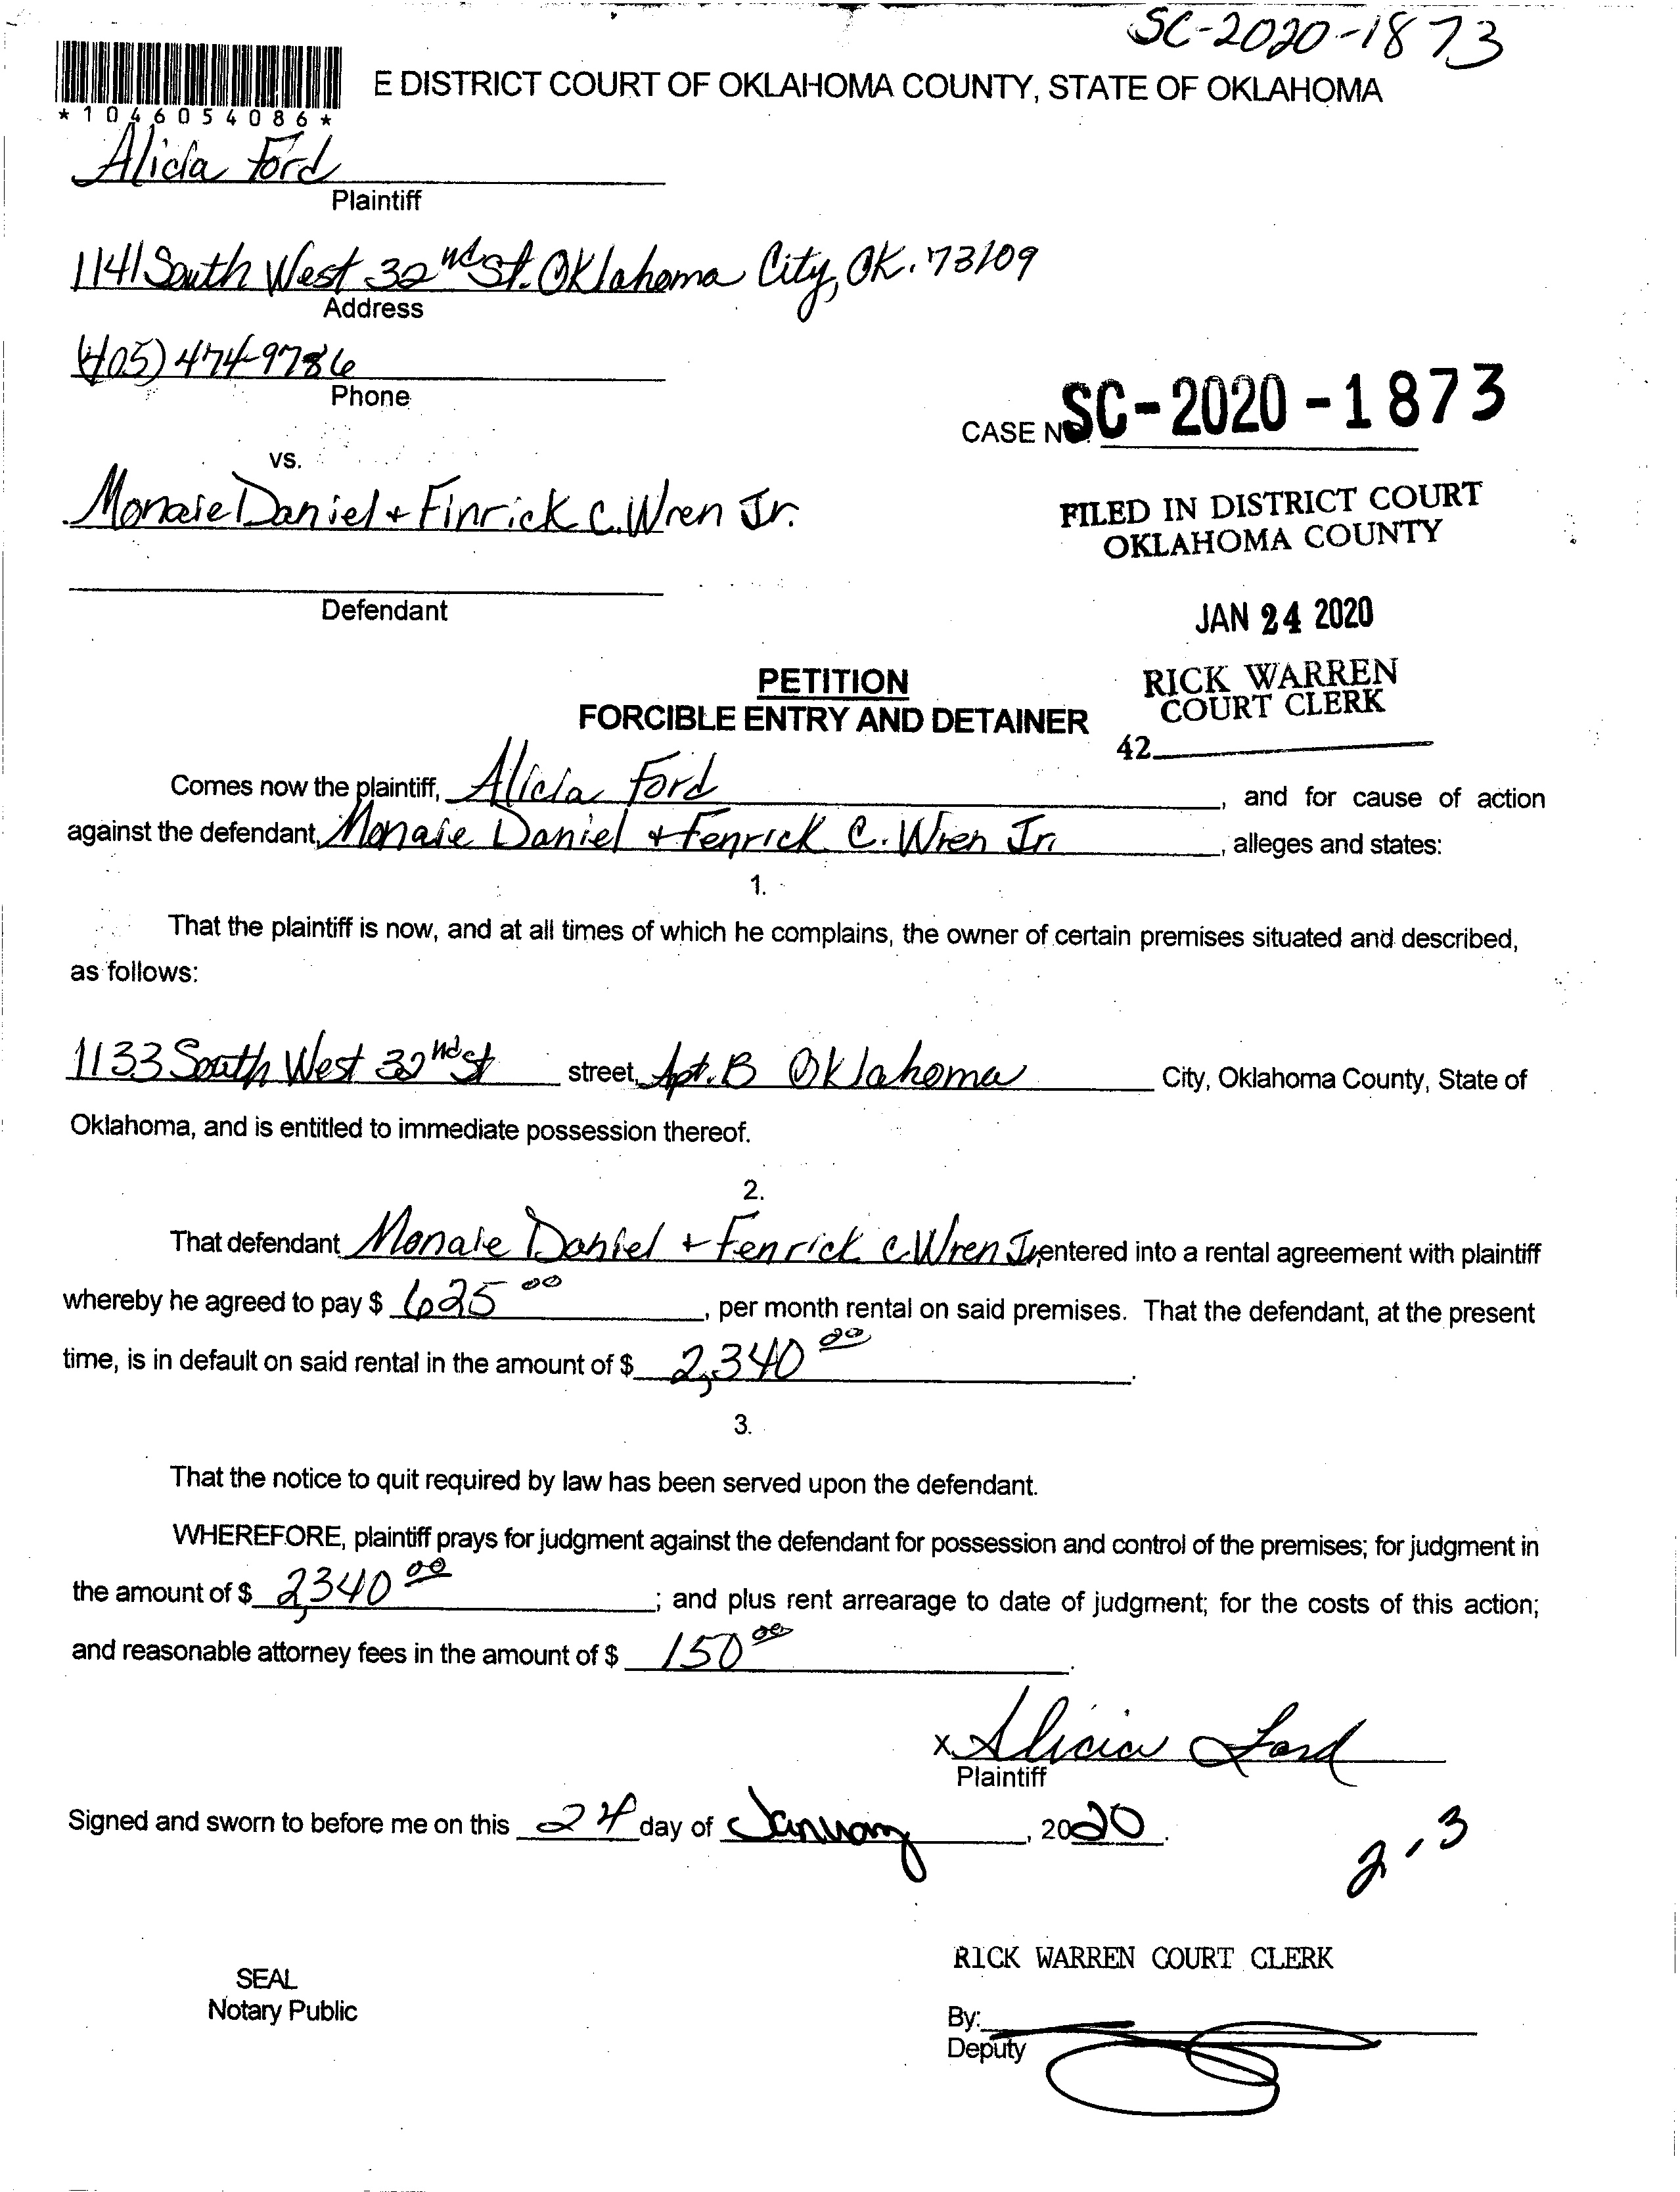 SC-2020-1873
E DISTRICT COURT OF OKLAHOMA COUNTY, STATE OF OKLAHOMA
*1046054086*
Alicia Ford
Plaintiff
1141 South West 32nd St. Oklahoma City, OK. 73109
Address
(405) 474-9786
Phone
CASE NO. SC-2020-1873
vs.
Monaie Daniel + Finrick C. Wren Jr.
FILED IN DISTRICT COURT
OKLAHOMA COUNTY
Defendant
JAN 24 2020
PETITION
RICK WARREN
COURT CLERK
FORCIBLE ENTRY AND DETAINER
42
Comes now the plaintiff, Alicia Ford, and for cause of action
against the defendant, Monaie Daniel + Fenrick C. Wren Jr., alleges and states:
1.
That the plaintiff is now, and at all times of which he complains, the owner of certain premises situated and described,
as follows:
1133 South West 32nd St street, Apt. B Oklahoma City, Oklahoma County, State of
Oklahoma, and is entitled to immediate possession thereof.
2.
That defendant Monaie Daniel + Fenrick C Wren Jr, entered into a rental agreement with plaintiff
whereby he agreed to pay $ 625 00, per month rental on said premises. That the defendant, at the present
time, is in default on said rental in the amount of $ 2,340 00.
3.
That the notice to quit required by law has been served upon the defendant.
WHEREFORE, plaintiff prays for judgment against the defendant for possession and control of the premises; for judgment in
the amount of $ 2,340 00; and plus rent arrearage to date of judgment; for the costs of this action;
and reasonable attorney fees in the amount of $ 150 00.
x Alicia Ford
Plaintiff
Signed and sworn to before me on this 24 day of January, 2020.
2-3
RICK WARREN COURT CLERK
SEAL
Notary Public
By:
Deputy